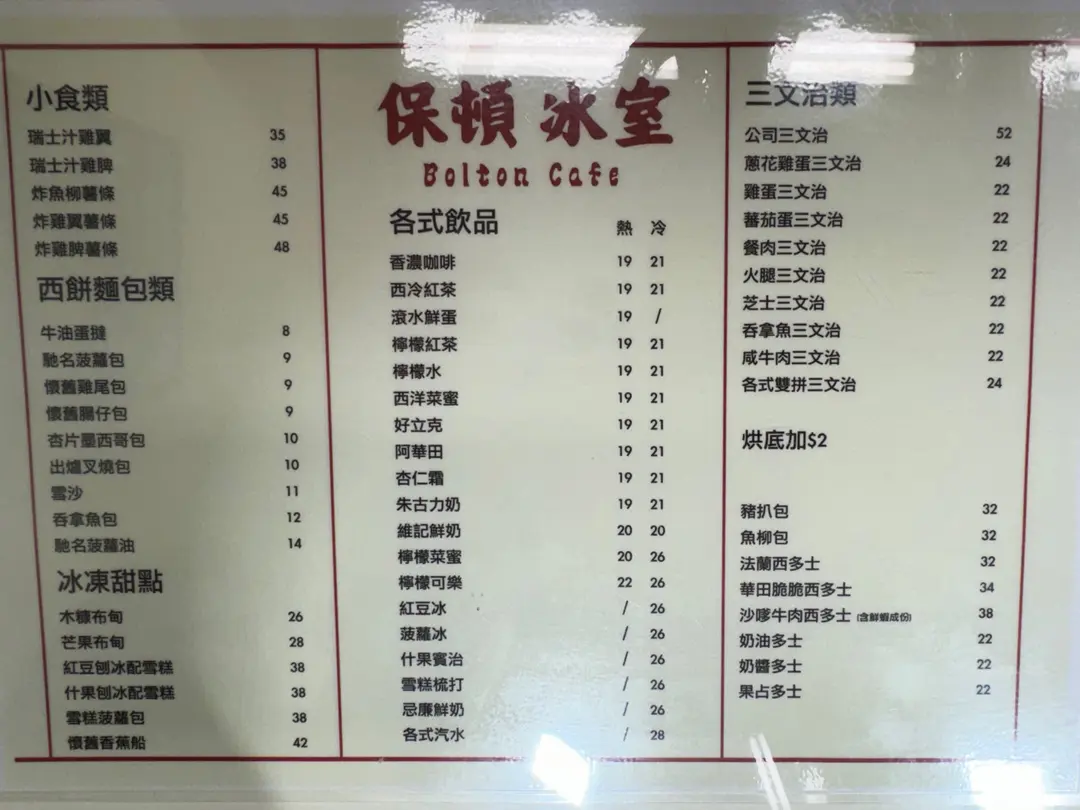 小食類
瑞士汁雞翼 35
瑞士汁雞脾 38
炸魚柳薯條 45
炸雞翼薯條 45
炸雞脾薯條 48
西餅麵包類
牛油蛋撻 8
馳名菠蘿包 9
懷舊雞尾包 9
懷舊腸仔包 9
杏片墨西哥包 10
出爐叉燒包 10
雪沙 11
吞拿魚包 12
馳名菠蘿油 14
冰凍甜點
木糠布甸 26
芒果布甸 28
紅豆刨冰配雪糕 38
什果刨冰配雪糕 38
雪糕菠蘿包 38
懷舊香蕉船 42
保頓冰室
Bolton Cafe
各式飲品 熱 冷
香濃咖啡 19 21
西冷紅茶 19 21
滾水鮮蛋 19 /
檸檬紅茶 19 21
檸檬水 19 21
西洋菜蜜 19 21
好立克 19 21
阿華田 19 21
杏仁霜 19 21
朱古力奶 19 21
維記鮮奶 20 20
檸檬菜蜜 20 26
檸檬可樂 22 26
紅豆冰 / 26
菠蘿冰 / 26
什果賓治 / 26
雪糕梳打 / 26
忌廉鮮奶 / 26
各式汽水 / 28
三文治類
公司三文治 52
蔥花雞蛋三文治 24
雞蛋三文治 22
蕃茄蛋三文治 22
餐肉三文治 22
火腿三文治 22
芝士三文治 22
吞拿魚三文治 22
咸牛肉三文治 22
各式雙拼三文治 24
烘底加$2
豬扒包 32
魚柳包 32
法蘭西多士 32
華田脆脆西多士 34
沙嗲牛肉西多士 (含鮮蝦成份) 38
奶油多士 22
奶醬多士 22
果占多士 22